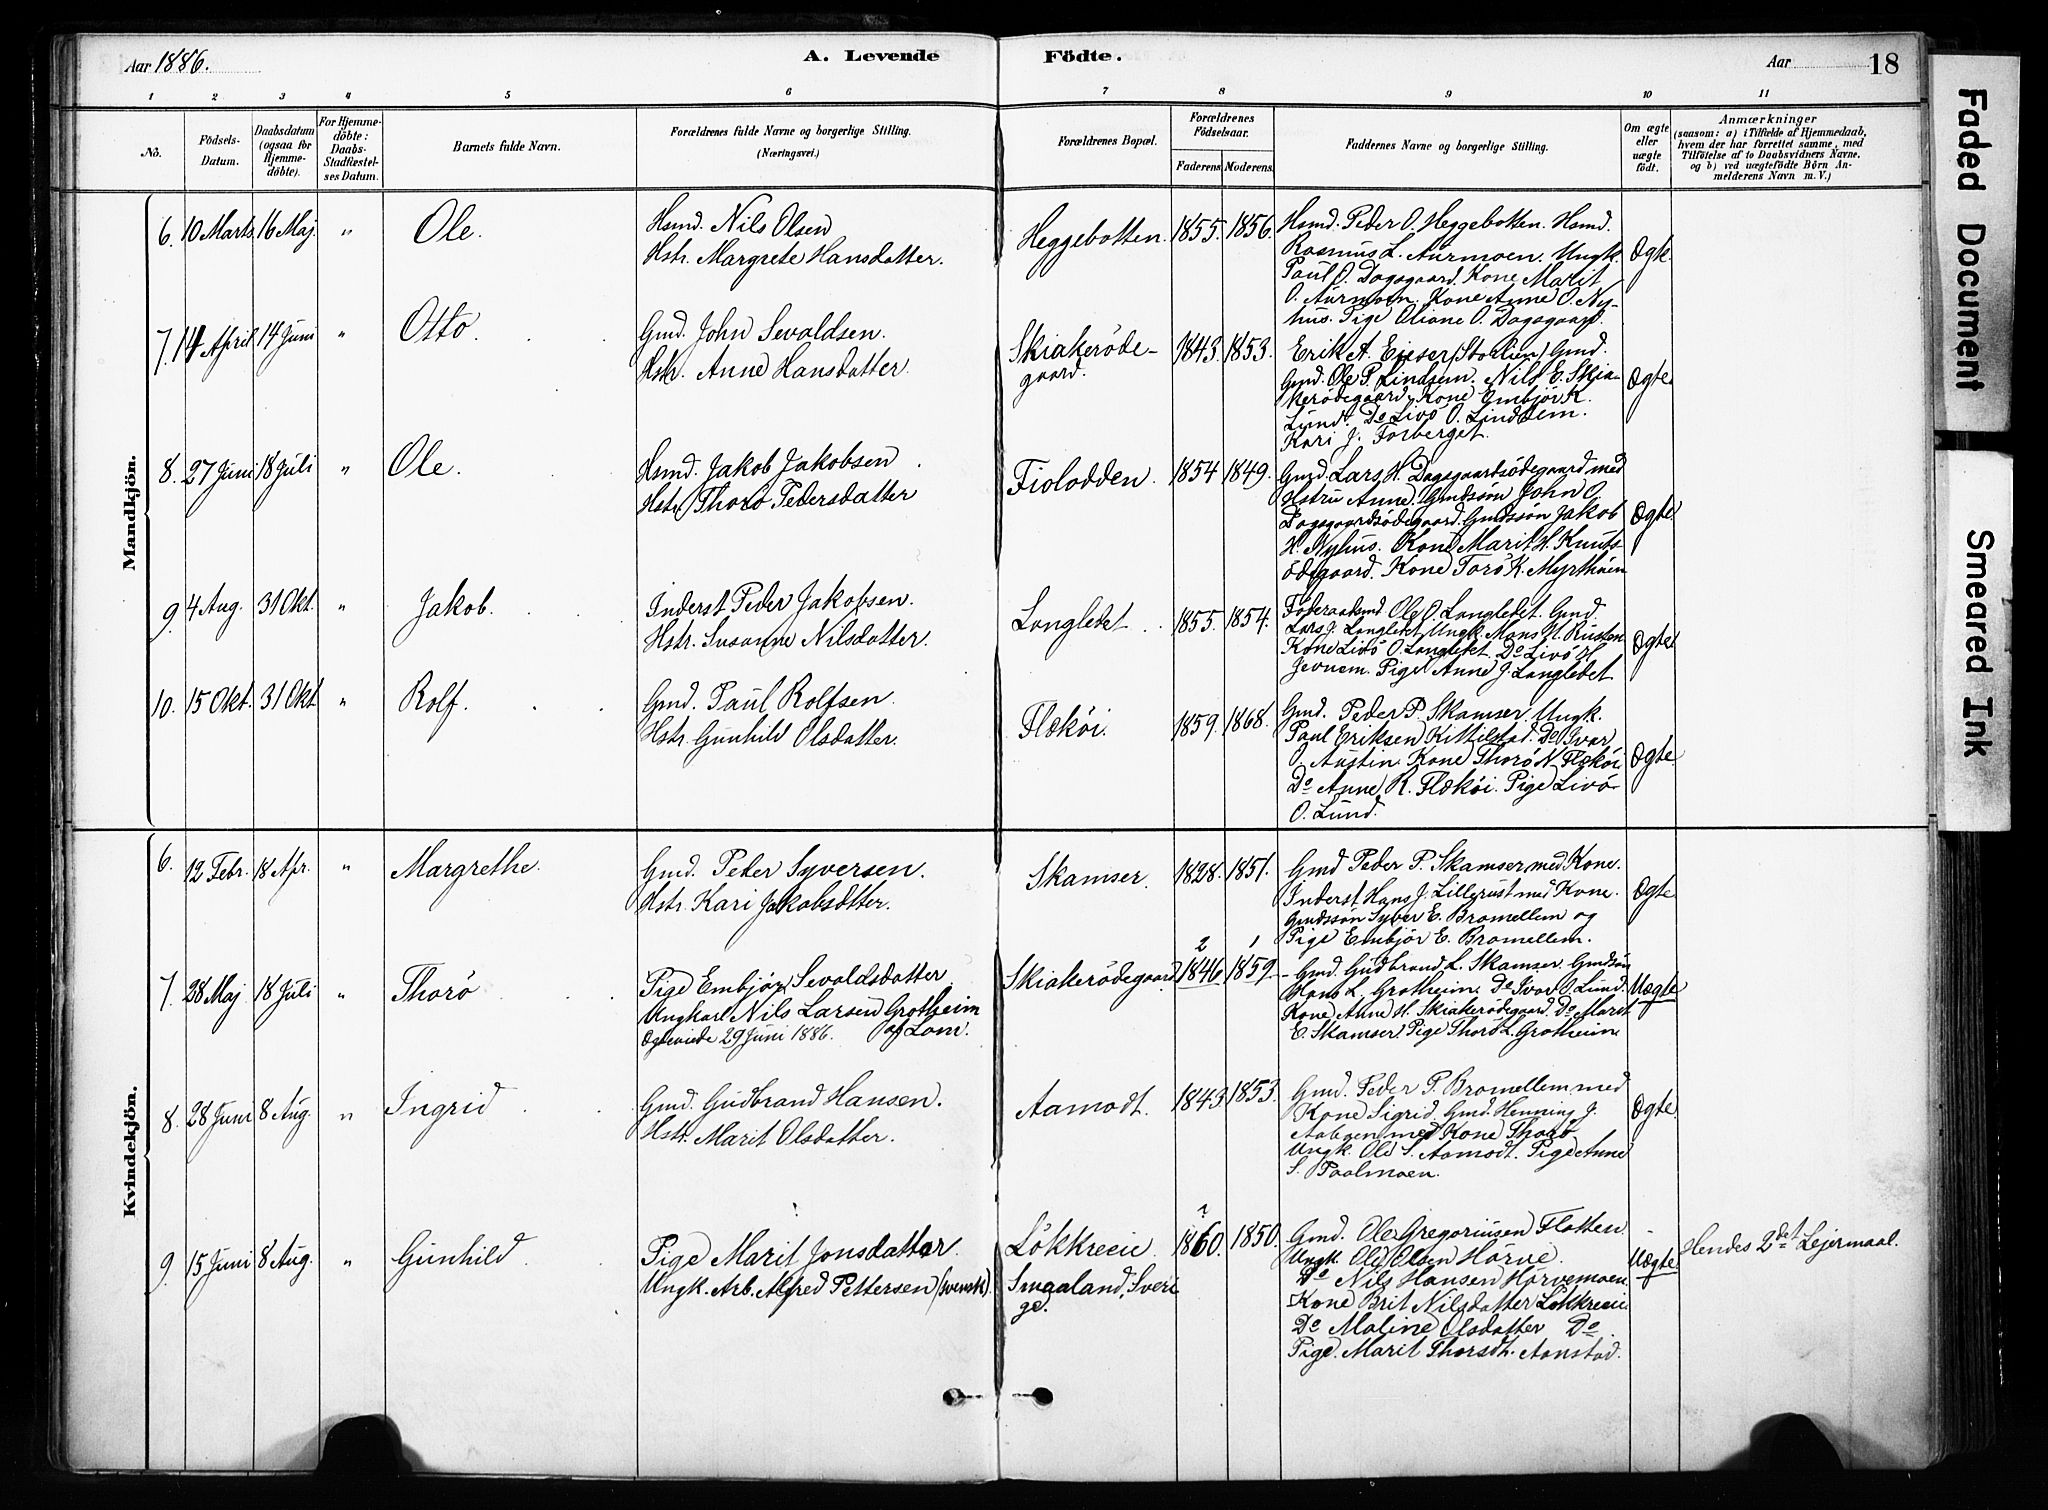 Aar 1886.
A. Levende Födte.
Aar 18
1 2 3 4 5 6 7 8 9 10 11
No.
Födsels-Datum.
Daabsdatum (ogsaa for Hjemmedöbte).
For Hjemmedöbte: Daabs-Stadfæstelses Datum.
Barnets fulde Navn.
Forældrenes fulde Navne og borgerlige Stilling.
(Næringsvei.)
Forældrenes Bopæl.
Forældrenes Födselsaar.
Faderens. Moderens.
Faddernes Navne og borgerlige Stilling.
Om ægte eller uægte födt.
Anmærkninger
(saasom: a) i Tilfælde af Hjemmedaab, hvem der har forrettet samme, med Tilföielse af to Daabsvidners Navne, og b) ved uægtefödte Börn Anmelderens Navn m. V.)
Mandkjön.
6. 10 Marts. 16 Maj. " Ole.
Hsmd. Nils Olsen
Hstr. Margrete Hansdatter.
Heggebotten. 1855. 1856.
Hsmd. Peder O. Heggebotten. Hsmd.
Rasmus L. Aurmoen. Ungk.
Paul O. Dagsgaard. Kone Marit
O. Aurmoen. Kone Anne O. Ny-
hus. Pige Oliane O. Dagsgaard.
Ægte.
7. 14 April 14 Juni " Otto.
Gmd. John Sevaldsen.
Hstr. Anne Hansdatter.
Skiakeröde-
gaard.
1843. 1853.
Erik A. (Storlien) Gmd.
Gmd. Ole P. Lindsem. Nils E. Skia-
kerödegaard. Kone Embjör K.
Lund. Do Livö O. Lindsem.
Kari J. Forberget.
Ægte.
8. 27 Juni 18 Juli " Ole.
Hsmd. Jakob Jakobsen
Hstr. Thorö Pedersdatter
Fiolodden. 1854 1849.
Gmd. Lars H. Dagsgaardsödegaard med
Hstru Anne. Gmdssön John O.
Dagsgaardsödegaard. Gmdssön Jakob
H. Nyhus. Kone Marit H. Knuts-
ödegaard. Kone Torö K. Myrthaien
Ægte.
9. 4 Aug. 31 Okt. " Jakob.
Inderst Peder Jakobsen.
Hstr. Susanne Nilsdatter.
Langledet. 1855. 1854.
Föderaadsmd. Ole O. Langledet. Gmd.
Lars J. Langledet. Ungk. Mons H. Rusten
Kone Livö O. Langledet. Do Livö H.
Jevnem. Pige Anne J. Langledet
Ægte.
10. 15 Okt. 31 Okt " Rolf.
Gmd. Paul Rolfsen
Hstr. Gunhild Olsdatter.
Flæköi. 1859. 1868.
Gmd. Peder P. Skamser. Ungk.
Paul Eriksen Kittilstad. Do Ivar
O. Austin. Kone Thorö N. Flæköi
Do Anne R. Flæköi. Pige Livö
O. Lund.
Ægte.
Kvindekjön.
6. 12 Febr. 18 Apr. " Margrethe.
Gmd. Peder Syversen.
Hstr. Kari Jakobsdtter.
Skamser. 1828. 1851.
Gmd Peder P. Skamser med Kone.
Inderst Hans J. Lillerust med Kone.
Gmdssön Syver E. Bramellem og
Pige Embjör E. Bramellem.
Ægte
7. 28 Maj 18 Juli " Thorö
Pige Embjör Sevaldsdatter
Ungkarl Nils Larsen Grotheim
Ægteviede 29 Juni 1886. af Lom.
Skiakerödegaard 2 1846. 1 1859.
Gmd. Gudbrand L. Skamser. Gmdssön
Hans L. Grotheim. Do Ivar O. Lund.
Kone Anne H. Skiakerödegaard. Do Marit
E. Skamser. Pige Thorö L. Grotheim
Uægte
8. 28 Juni 8 Aug. " Ingrid
Gmd. Gudbrand Hansen.
Hstr. Marit Olsdatter.
Aamodt. 1843 1853.
Gmd. Peder P. Bramellem med
Kone Sigrid. Gmd. Henning J.
Aabegen med Kone Thorö
Ungk. Ole S. Aamodt. Pige Anne
S. Paalmoen.
Ægte
9. 15 Juni 8 Aug. " Gunhild
Pige Marit Jonsdatter.
Ungk. Arb. Alfred Pettersen (svensk).
Lökkreeie.
Smaaland, Sveri
ge.
? 1860. 1850.
Gmd. Ole Gregoriusen Flotten
Ungk. Ole Olsen Hörve.
Do Nils Hansen Hörvemoen
Kone Brit Nilsdatter Lökkreeie
Do Maline Olsdatter Do
Pige. Marit Thorsdt. Aanstad.
Uægte
Hendes 2det Lejermaal.
Faded Document
Smeared Ink